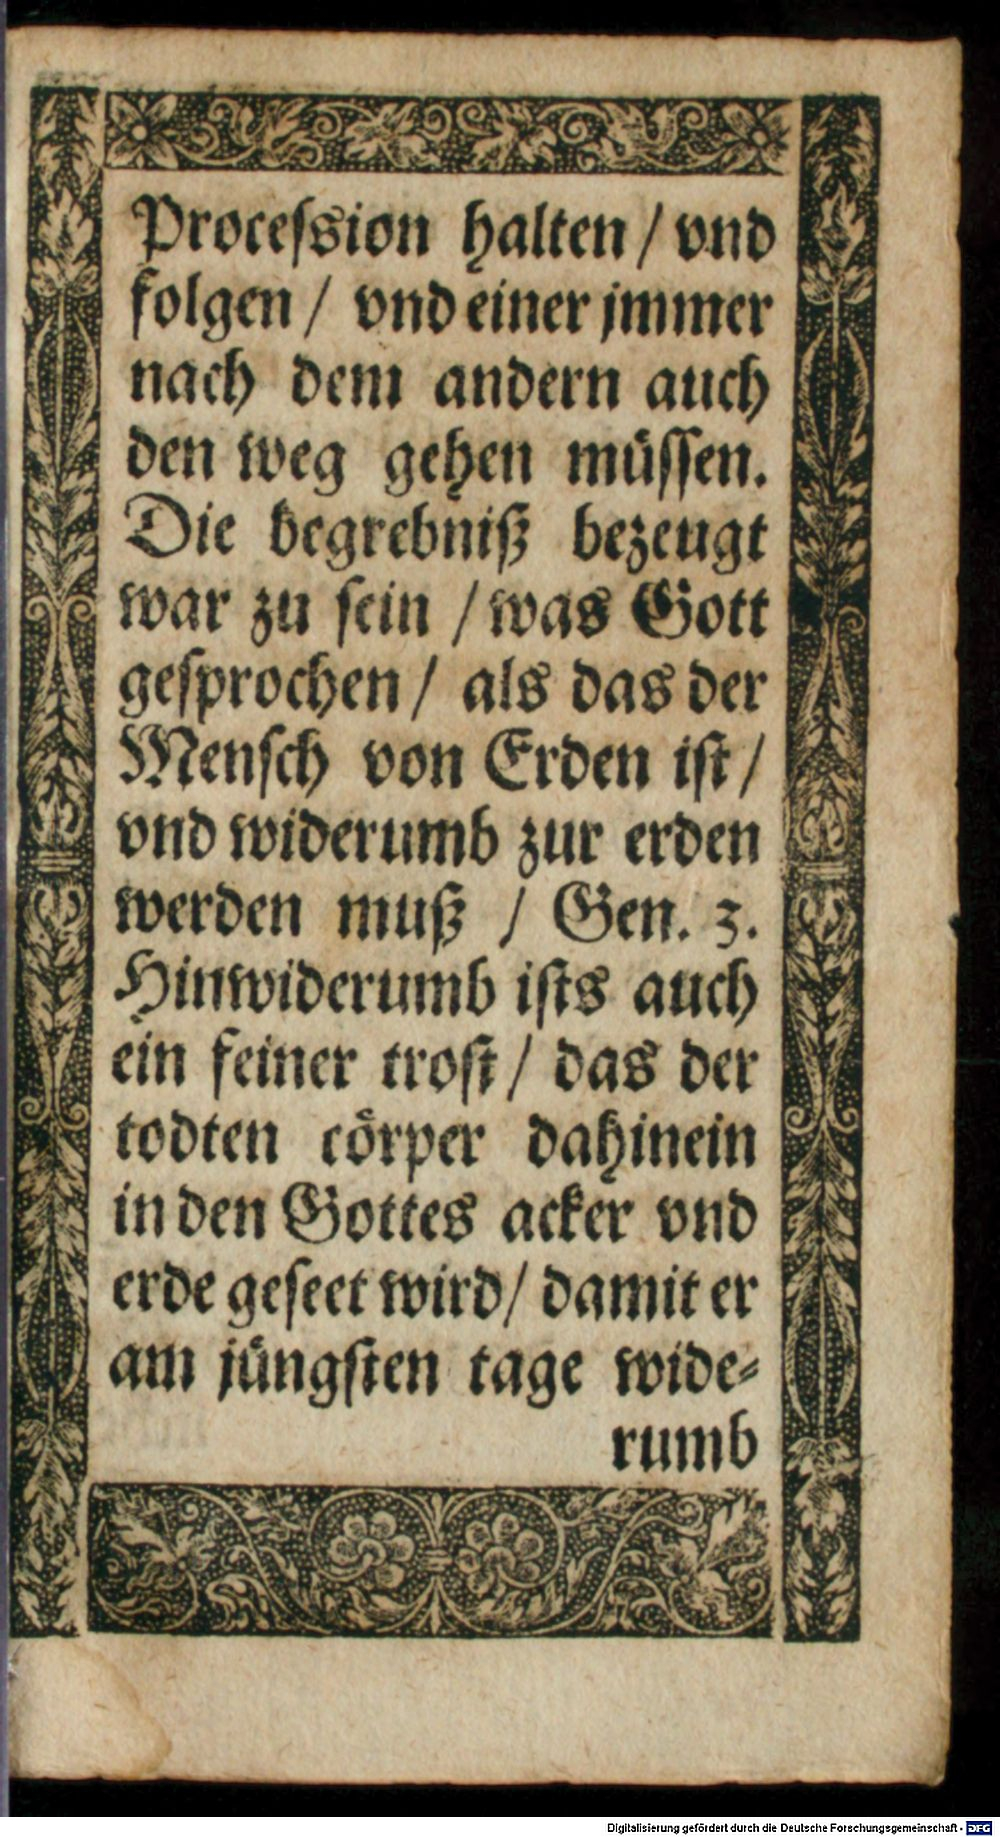 Proceſsion halten / vnd
folgen / vnd einer jmmer
nach dem andern auch
den weg gehen müſſen.
Die begrebniß bezeugt
war zu ſein / was Gott
geſprochen / als das der
Menſch von Erden iſt /
vnd widerumb zur erden
werden muß / Gen. 3.
Hinwiderumb iſts auch
ein feiner troſt / das der
todten cörper dahinein
in den Gottes acker vnd
erde geſeet wird / damit er
am jüngſten tage wide⸗
rumb
Digitalisierung gefördert durch die Deutsche Forschungsgemeinschaft - DFG